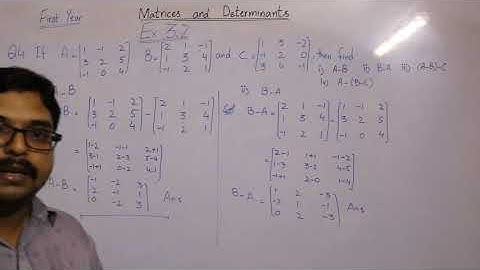 First Year
Matrices and Determinants
Ex 3.2
Q4 If A = [1 -1 2; 3 2 5; -1 0 4] B = [2 1 -1; 1 3 4; -1 2 1] and C = [1 3 -2; -1 2 0; 3 4 -1], then find
i) A-B ii) B-A iii) (A-B)-C
iv) A-(B-C)
-B = [1 -1 2; 3 2 5; -1 0 4] - [2 1 -1; 1 3 4; -1 2 1]
= [1-2 -1-1 2+1; 3-1 2-3 5-4; -1+1 0-2 4-1]
A-B = [-1 -2 3; 2 -1 1; 0 -2 3] Ans
ii) B-A
Sol B-A = [2 1 -1; 1 3 4; -1 2 1] - [1 -1 2; 3 2 5; -1 0 4]
= [2-1 1+1 -1-2; 1-3 3-2 4-5; -1+1 2-0 1-4]
B-A = [1 2 -3; -2 1 -1; 0 2 -3] Ans